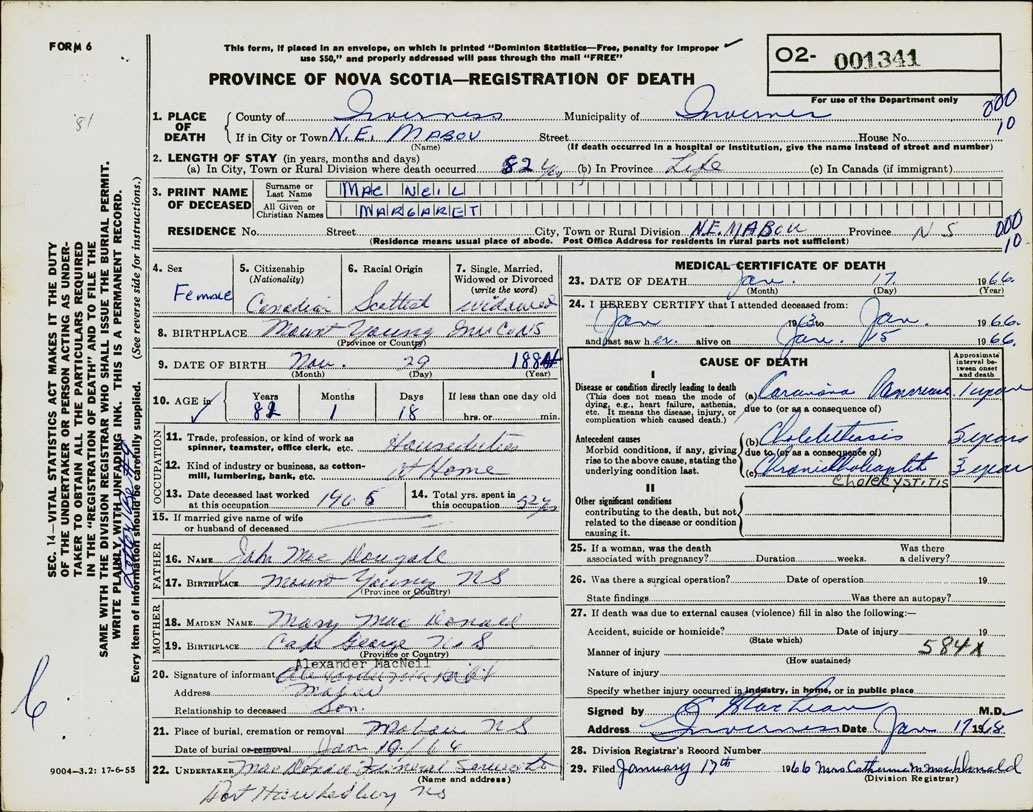 FORM 6
This form, if placed in an envelope, on which is printed "Dominion Statistics—Free, penalty for improper
use $50," and properly addressed will pass through the mail "FREE"
PROVINCE OF NOVA SCOTIA—REGISTRATION OF DEATH
O2- 001341
For use of the Department only
000
10
1. PLACE OF DEATH
County of Inverness Municipality of Inverness
If in City or Town N.E. MABOU Street House No.
(Name) (If death occurred in a hospital or institution, give the name instead of street and number)
2. LENGTH OF STAY (in years, months and days)
(a) In City, Town or Rural Division where death occurred 82 yrs (b) In Province Life (c) In Canada (if immigrant)
3. PRINT NAME OF DECEASED
Surname or Last Name MAC NEIL
All Given or Christian Names MARGARET
RESIDENCE No. Street City, Town or Rural Division N.E. MABOU Province N S
(Residence means usual place of abode. Post Office Address for residents in rural parts not sufficient)
000
10
4. Sex Female
5. Citizenship (Nationality) Canadian
6. Racial Origin Scottish
7. Single, Married, Widowed or Divorced (write the word) widowed
8. BIRTHPLACE Mount Young Inv Co NS
(Province or Country)
9. DATE OF BIRTH Nov. 29 1884
(Month) (Day) (Year)
10. AGE in Years 82 Months 1 Days 18 If less than one day old hrs. or min.
OCCUPATION
11. Trade, profession, or kind of work as spinner, teamster, office clerk, etc. Houseduties
12. Kind of industry or business, as cotton-mill, lumbering, bank, etc. At Home
13. Date deceased last worked at this occupation 1965
14. Total yrs. spent in this occupation 52 yrs
15. If married give name of wife or husband of deceased
FATHER
16. NAME John Mac Dougall
17. BIRTHPLACE Mount Young NS
(Province or Country)
MOTHER
18. MAIDEN NAME Mary Mac Donald
19. BIRTHPLACE Cape George N S
(Province or Country)
Alexander MacNeil
20. Signature of informant
Address Mabou
Relationship to deceased Son.
21. Place of burial, cremation or removal Mabou NS
Date of burial or removal Jan 19/66
22. UNDERTAKER MacDonald Funeral
(Name and address)
Port Hawkesbury NS
MEDICAL CERTIFICATE OF DEATH
23. DATE OF DEATH Jan. 17. 1966.
(Month) (Day) (Year)
24. I HEREBY CERTIFY that I attended deceased from:
Jan 1963 to Jan. 1966.
and last saw her alive on Jan. 15 1966.
CAUSE OF DEATH
Approximate interval between onset and death
I
Disease or condition directly leading to death
(This does not mean the mode of dying, e.g., heart failure, asthenia, etc. It means the disease, injury, or complication which caused death.)
(a) Carcinoma Pancreas 1 year
due to (or as a consequence of)
Antecedent causes
Morbid conditions, if any, giving rise to the above cause, stating the underlying condition last.
(b) Cholelithiasis 5 years
due to (or as a consequence of)
(c) Chronic 3 year
CHOLECYSTITIS
II
Other significant conditions
contributing to the death, but not related to the disease or condition causing it.
25. If a woman, was the death associated with pregnancy? Duration weeks. Was there a delivery?
26. Was there a surgical operation? Date of operation 19
State findings Was there an autopsy?
27. If death was due to external causes (violence) fill in also the following:—
Accident, suicide or homicide? Date of injury 19
(State which)
Manner of injury 584X
(How sustained)
Nature of injury
Specify whether injury occurred in industry, in home, or in public place
Signed by MacLean M.D.
Address Inverness Date Jan 17 19
28. Division Registrar's Record Number
29. Filed January 17th 1966 Mrs Catherine M MacDonald
(Division Registrar)
SEC. 14—VITAL STATISTICS ACT MAKES IT THE DUTY
OF THE UNDERTAKER OR PERSON ACTING AS UNDER-
TAKER TO OBTAIN ALL THE PARTICULARS REQUIRED
IN THE "REGISTRATION OF DEATH" AND TO FILE THE
SAME WITH THE DIVISION REGISTRAR WHO SHALL ISSUE THE BURIAL PERMIT.
WRITE PLAINLY WITH UNFADING INK. THIS IS A PERMANENT RECORD.
Every item of information should be carefully supplied. (See reverse side for instructions.)
81
6
9004—3.2: 17-6-55